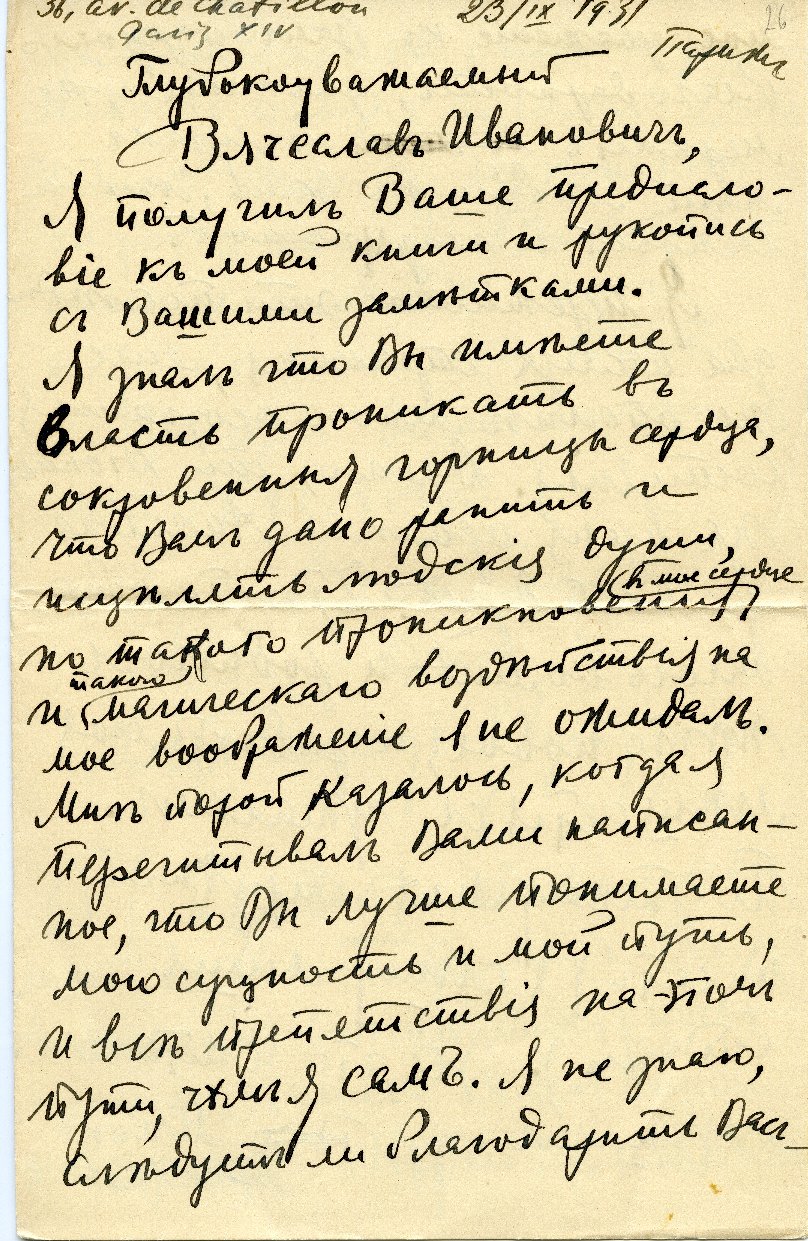 36, av. de Chatillon 23/IX 1931
Paris XIV
26
Париж
Глубокоуважаемый
Вячеславъ Ивановичъ,
Я получилъ Ваше предисло-
віе къ моей книги и рукопись
съ Вашими замѣтками.
Я зналъ что Вы имѣете
власть проникать въ
сокровенныя горницы сердца,
что Вамъ дано ранить и
исцѣлять людскія души,
въ мое сердце
но такого проникновенія
такого
и магическаго воздѣйствія на
мое воображеніе я не ожидалъ.
Мнѣ порой казалось, когда я
перечитывалъ Вами написан-
ное, что Вы лучше понимаете
мою сущность и мой путь,
и всѣ препятствія на этомъ
пути, чѣмъ я самъ. Я не знаю,
слѣдуетъ ли благодарить Васъ